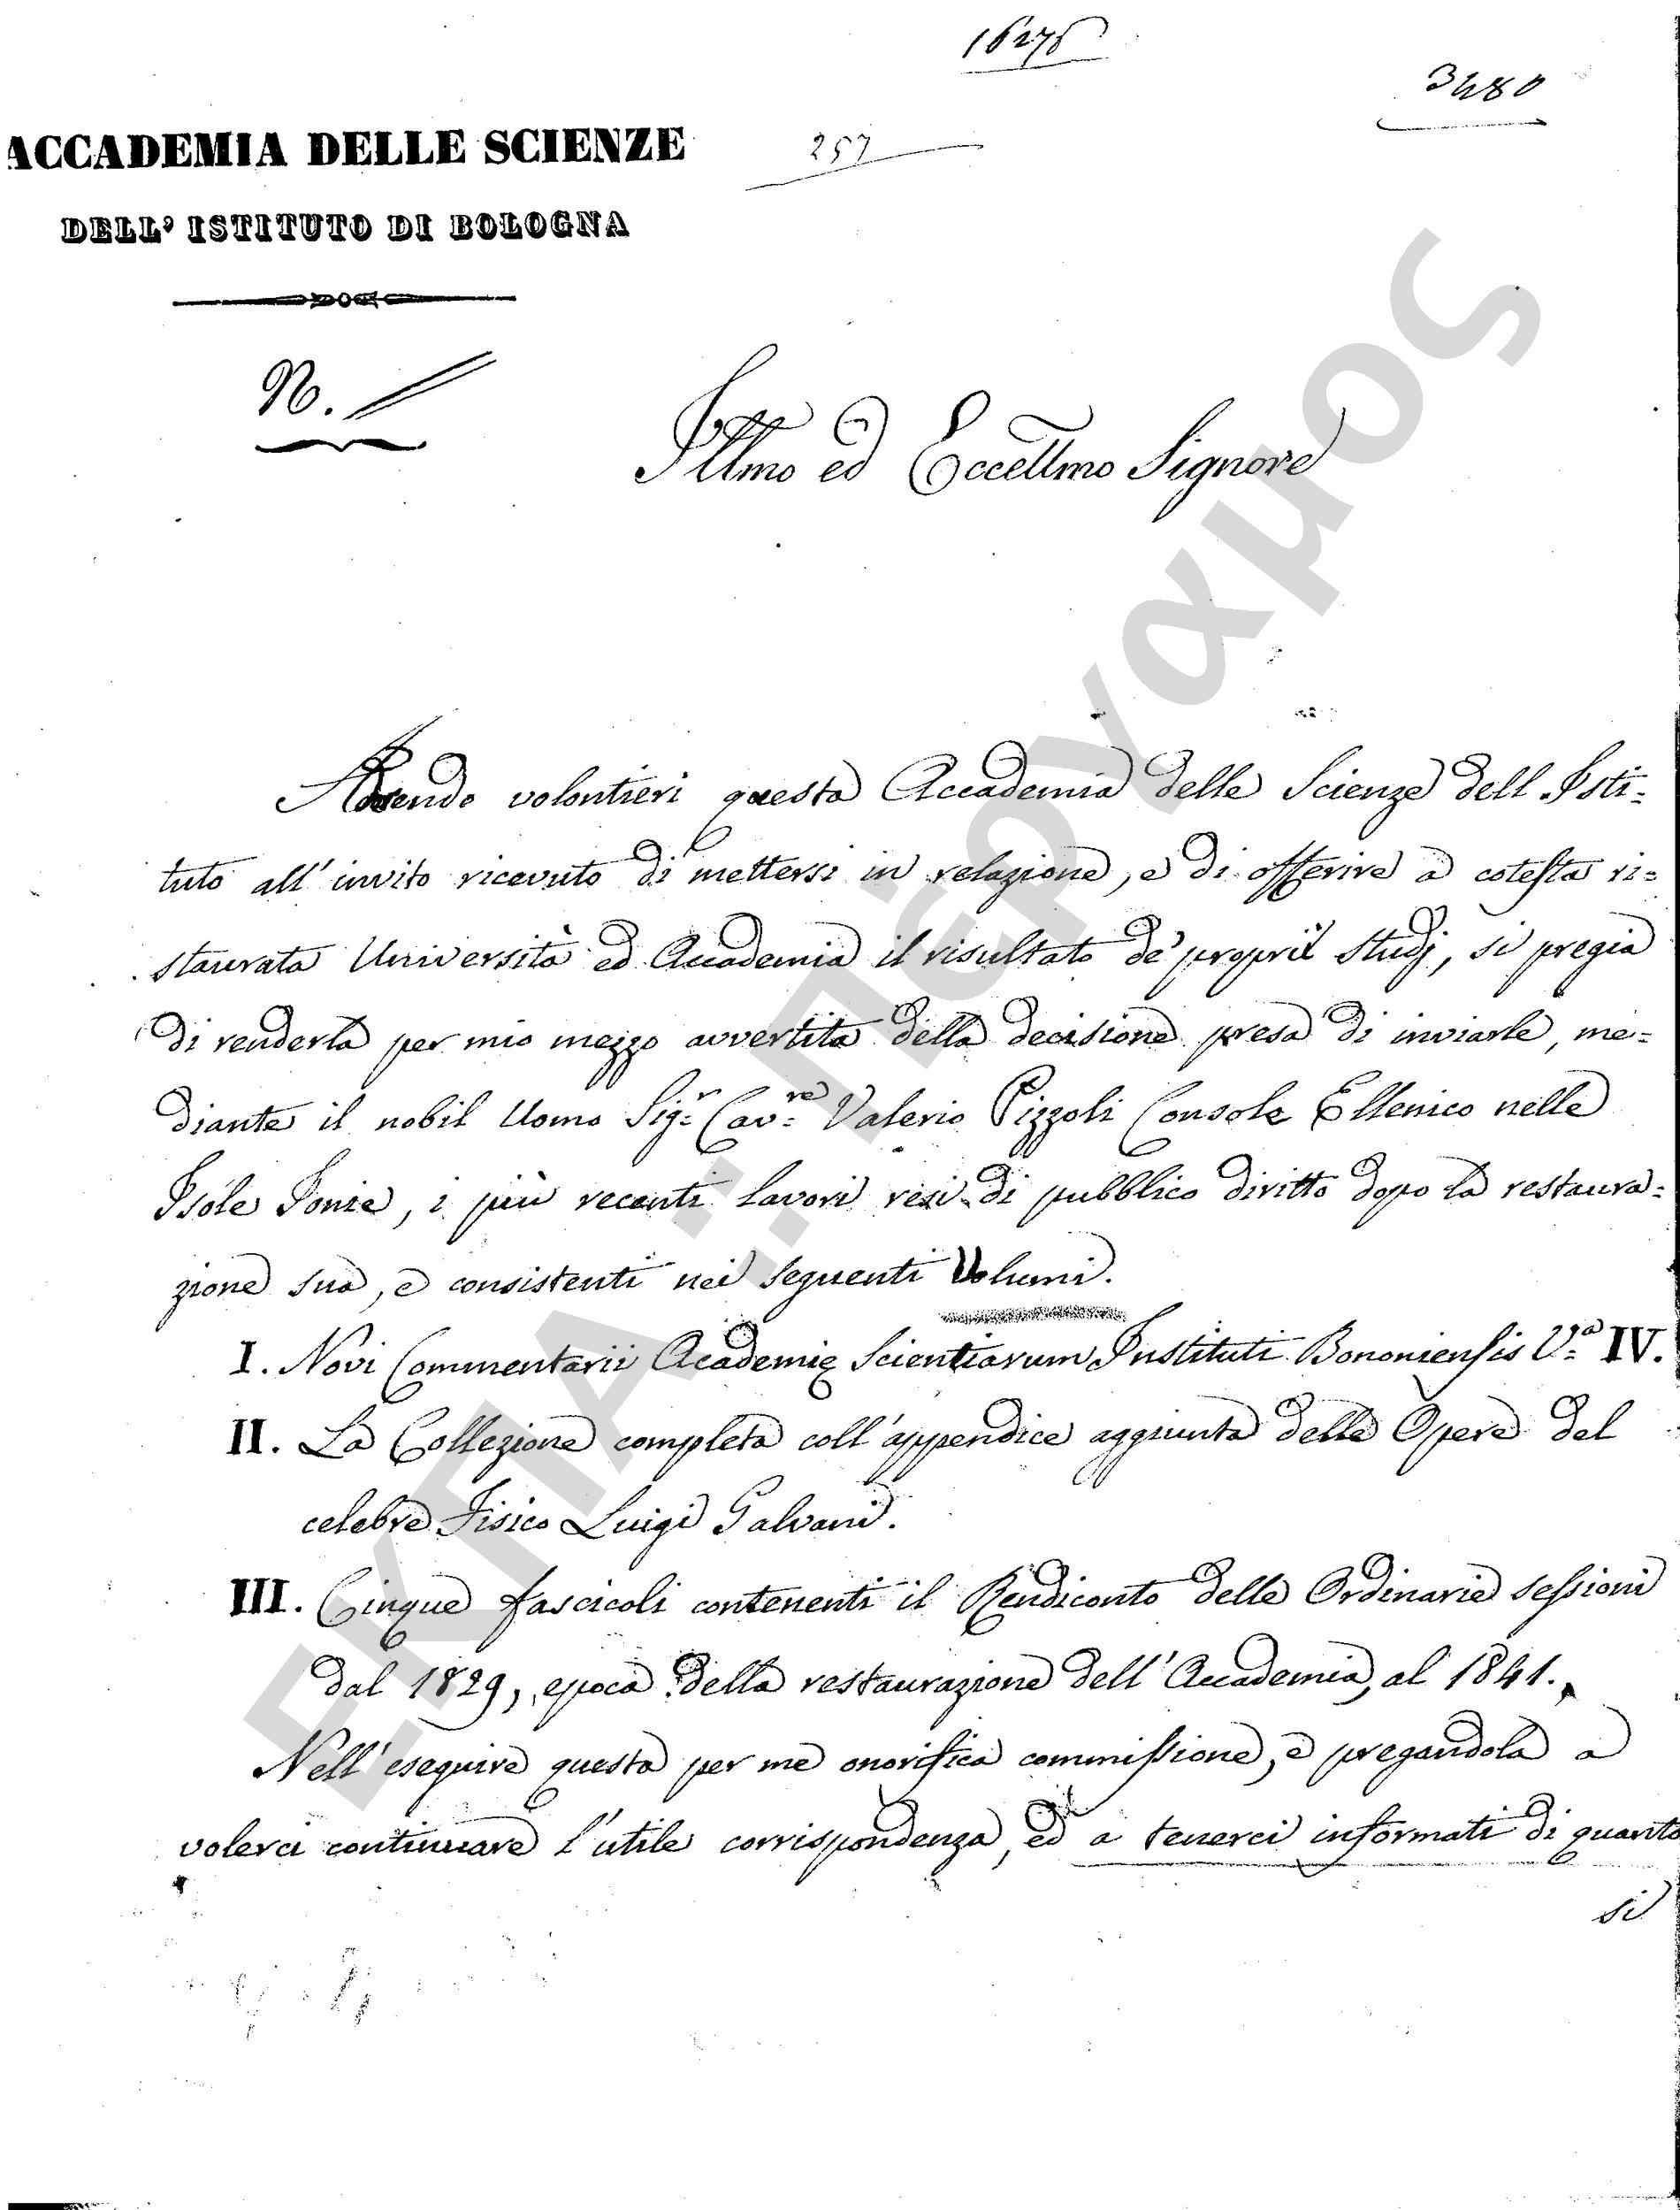 16276
3480
ACCADEMIA DELLE SCIENZE
257
DELL' ISTITUTO DI BOLOGNA
N.
Illmo ed Eccellmo Signore
volontieri questa Accademia delle Scienze dell Isti=
tuto all' invito ricevuto di mettersi in relazione, e di offerire a cotesta ri=
staurata Università ed Accademia il risultato de' proprii studj, si pregia
di renderla per mio mezzo avvertita della decisione presa di inviarle, me=
diante il nobil Uomo Sig.r Cav.re Valerio Pizzoli Console Ellenico nelle
Isole Ionie, i più recenti lavori resi di pubblico diritto dopo la restaura=
zione sua, e consistenti nei seguenti Volumi.
I. Novi Commentarii Academiæ Scientiarum Instituti Bononiensis V.a IV.
II. La Collezione completa coll' appendice aggiunta delle Opere del
celebre Fisico Luigi Galvani.
III. Cinque fascicoli contenenti il Rendiconto delle Ordinarie sessioni
dal 1829, epoca della restaurazione dell' Accademia, al 1841.
Nell' eseguire questa per me onorifica commissione, e pregandola a
volerci continuare l' utile corrispondenza, ed a tenerci informati di quanto
si
ΕΚΠΑ :: Πέργαμος